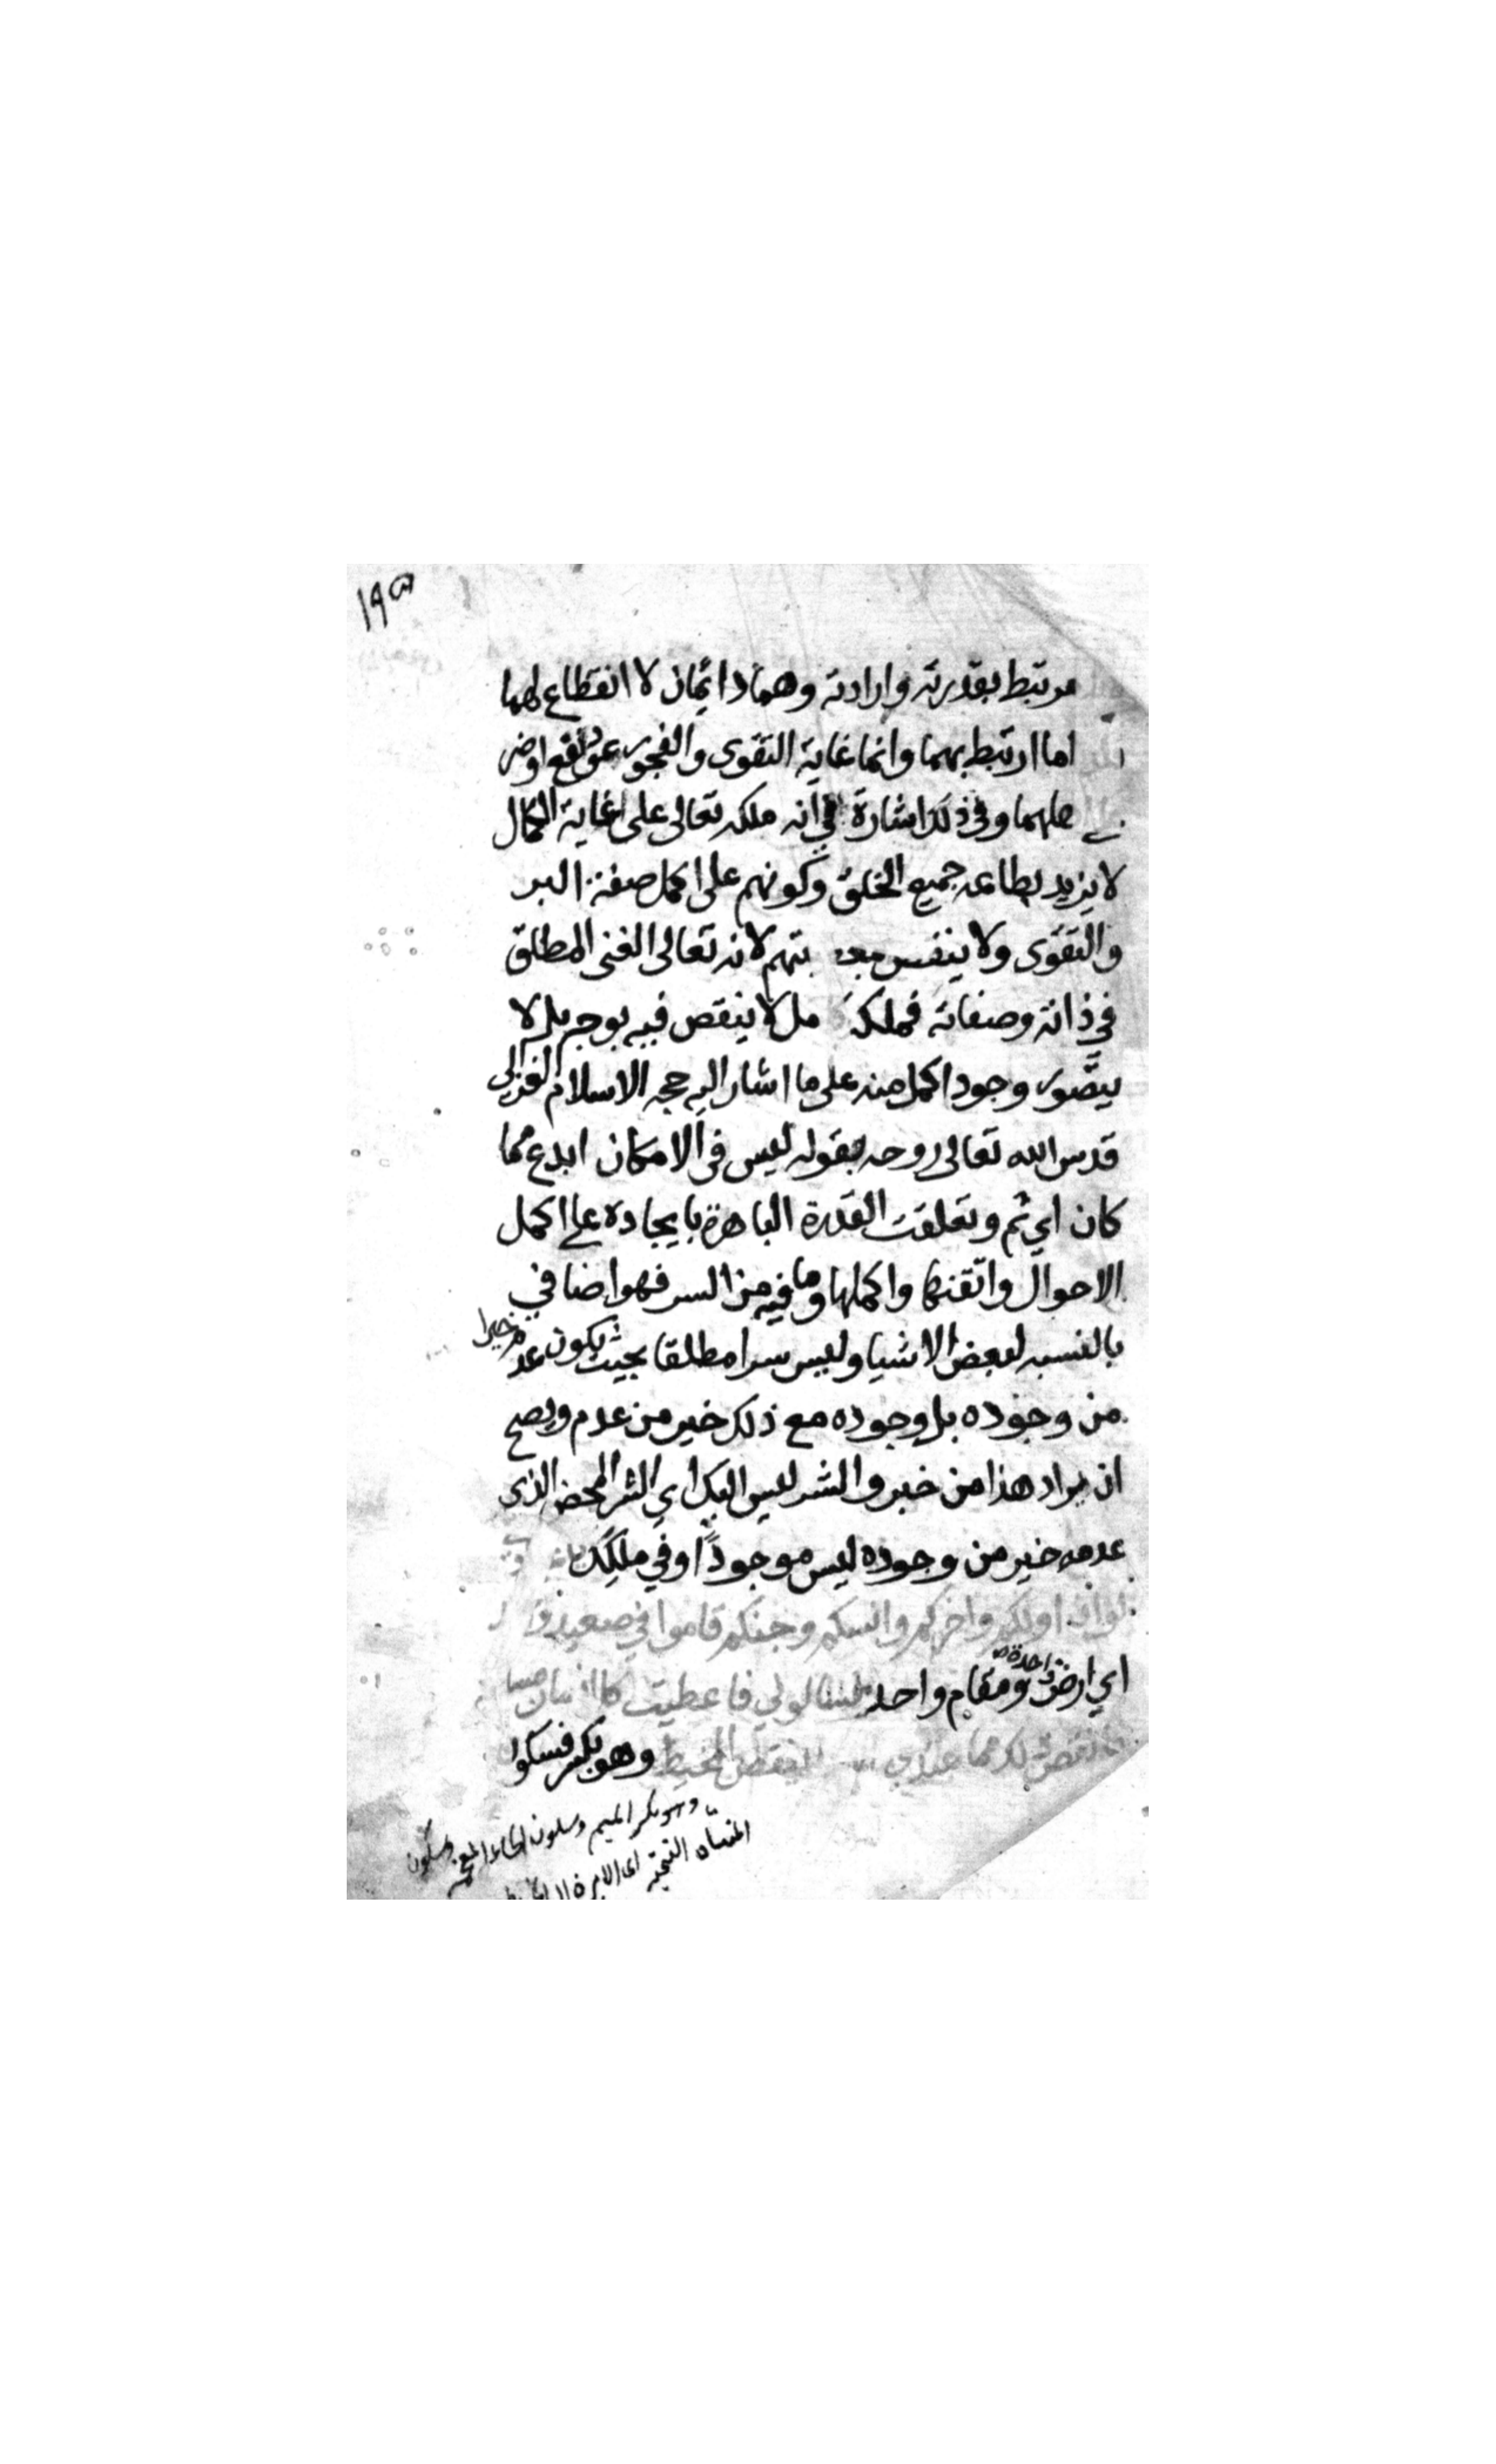 ١٩٥
مرتبط بقدرته وارادته وهما دائمان لا انقطاع لهما
اما ارتبط بهما وانما غاية التقوى والفجور عود نفع اوضر
علي اهلهما وفي ذلك اشارة في انه ملكه تعالى على غاية الكمال
لا يزيد بطاعه جميع الخلق وكونهم على اكمل صفة البر
والتقوى ولا ينقص بتهم لانه تعالى الغني المطلق
في ذاته وصفاته فملكه مل لا ينقص فيه بوجه بل لا
يتصور وجود اكمل منه على ما اشار اليه حجه الاسلام الغزالي
قدس الله تعالى روحه بقوله ليس في الامكان ابدع مما
كان اي ثم وتعلقت القدرة الباهرة بايجاده على اكمل
الاحوال واتقنها واكملها وما فيه من السر فهو اضافي
بالنسبه لبعض الاشيا وليس سرا مطلقا بحيث يكون عدمه خيرا
من وجوده بل وجوده مع ذلك خير من عدم ويصح
ان يراد هذا من خبر والشر ليس اليك اي الشر المحض الذي
عدمه خير من وجوده ليس موجودًا وفي ملكك
لوان اولكم واخركم وانسكم وجنكم قاموا في صعيد
اي ارض واحدة ومقام واحد فسالوني فاعطيت كل انسان
ما نقص ذلك مما عندي ينقص المخيط وهو بكسر فسكون
وهو بكسر الميم وسكون الخاء المعجمة وسكون
المثناة التحتية اي الابرة